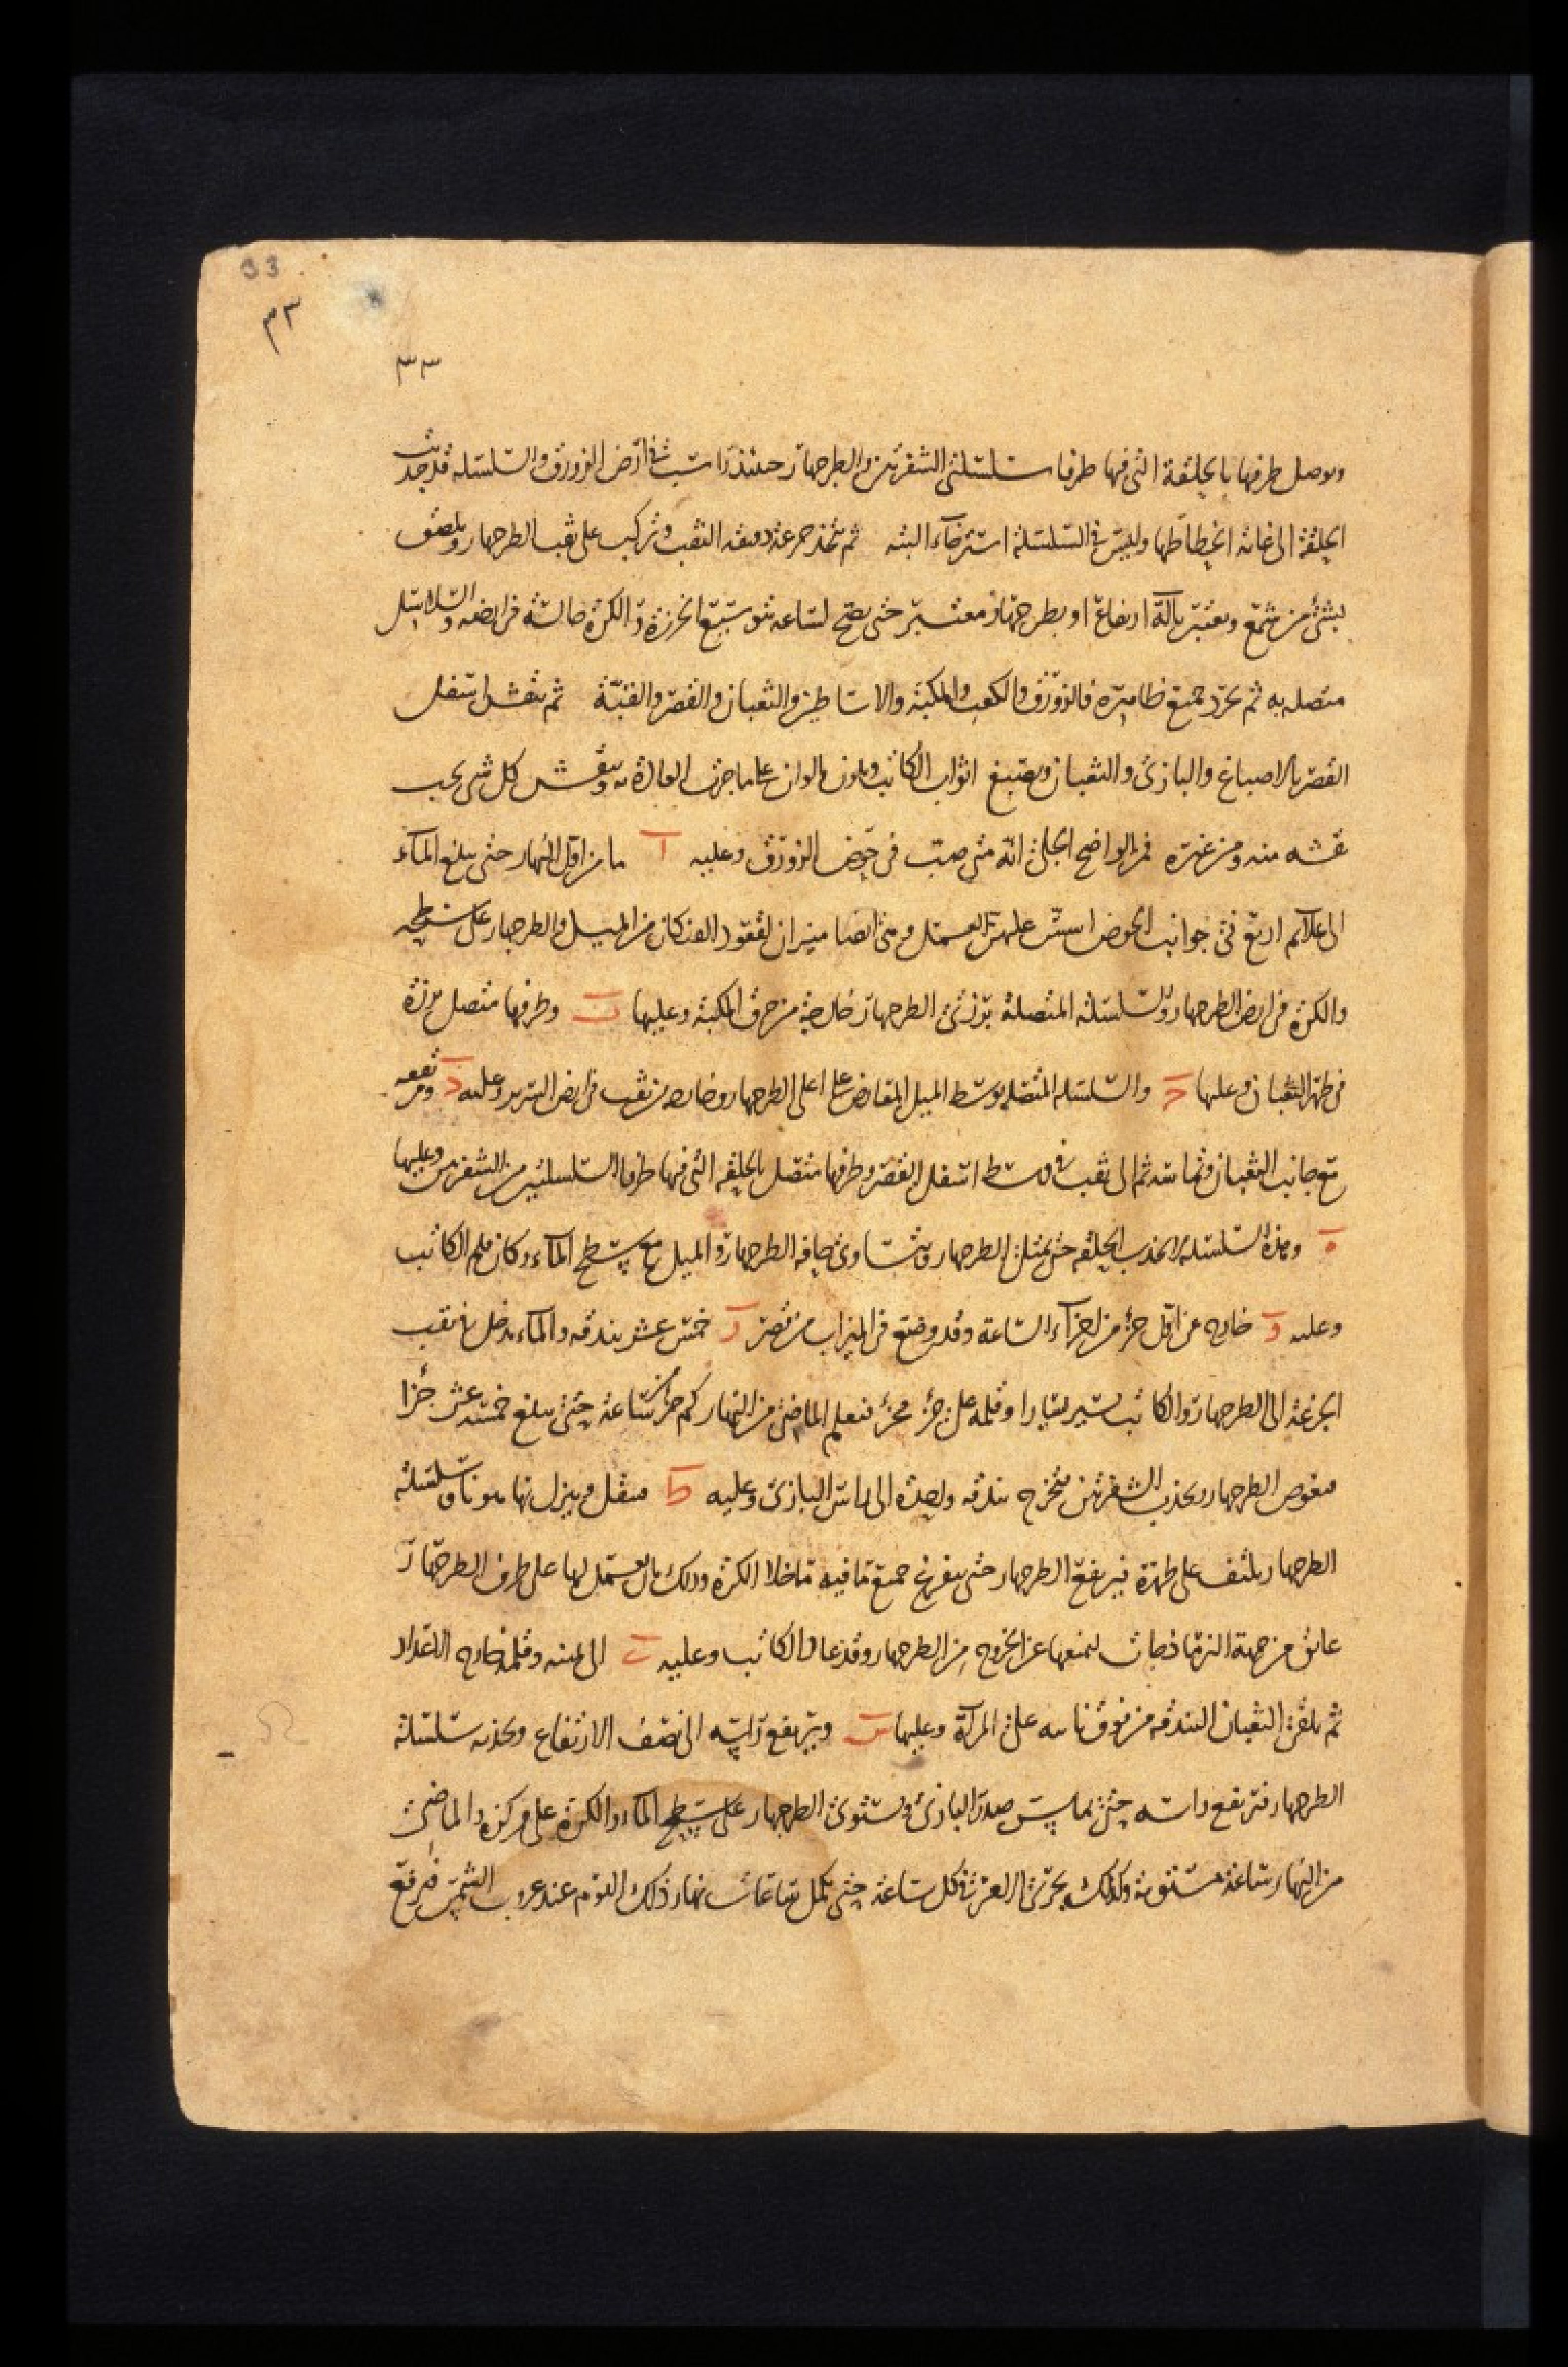 33
٣٣
٣٣
ويوصل طرفها بالحلقة التي فيها طرفا سلسلتي الشفرتين والطرجهار حينئذ راسب في ارض الزورق والسلسلة قد جذبت
الحلقة الى غاية انحطاطها وليس في السلسلة استرخاء البته ثم تتخذ جزعة دقيقة الثقب وتركب على ثقب الطرجهار ويلصق
بشئ من شمع ويعتبر بآلة ارتفاع او بطرجهار معتبر حتى يصح لساعة بتوسيع الخرزة و الكرة جالسة في ارضه والسلاسل
متصله به ثم يحرد جميع ظاهره فالزورق والكعب والمكبة والاساطين والثعبان والقصر والقبة ثم ينقش اسفل
القصر بالاصباغ والبازي والثعبان ويصبغ اثواب الكاتب ويلون بالوان على ما جرت العادة به وينقش كل شي يجب
نقشه منه ومن غيره فمن الواضح الجلي انه متى صب في حوض الزورق وعليه ا ما من اول النهار حتى يبلغ الماء
الى علايم اربع في جوانب الحوض اسس عليهن العمل وهي ايضا ميزان لقعود الفنكان من الميل والطرجهار على سطحه
والكرة في ارض الطرجهار والسلسلة المتصلة برزتي الطرجهار خارجة من خرق المكبة وعليها ب وطرفها متصل برزة
في ظهر الثعبان وعليها ح والسلسله المتصله بوسط الميل المعارض على اعلى الطرجهار وخارجه من ثقب في ارض السرير وعليه د ومرتفعه
مع جانب الثعبان وتماسه ثم الى ثقب في وسط اسفل القصر وطرفها متصل بالحلقه التي فيها طرفا السلسلتين من الشفرتين وعليها
ه وهذه السلسلة لا تجذب الحلقه حتى يمتلئ الطرجهار ويتساوى حافة الطرجهار والميل مع سطح الماء وكان قلم الكاتب
وعليه و خارج عن اول جزء من اجزاء الساعة وقد وضع في الميزاب من قصر ز خمس عشر بندقه والماء يدخل في ثقب
الجزعة الى الطرجهار والكاتب يسير يسارا وقلمه على جزء جزء فيعلم الماضي من النهار كم جزء ساعة حتى يبلغ خمسة عشر جزأ
فيغوص الطرجهار ويجذب الشفرتين فتخرج بندقه واحدة الى راس البازي وعليه ط فيثقل وينزل بها هونا وسلسلة
الطرجهار يلتف على ظهره فيرتفع الطرجهار حتى يتفرغ جميع ما فيه ما خلا الكرة وذلك بان يعمل لها على طرف الطرجهار
عائق من جهة النرماذجات ليمنعها عن الخروج من الطرجهار وقد عاد الكاتب وعليه ى الى يمينه وقلمه خارج الاعداد
ثم يلقى الثعبان البندقه من فوق نابه على المرآة وعليها س ويرتفع رأسه الى نصف الارتفاع ويجذبه سلسلة
الطرجهار فيرتفع راسه حتى يماس صدر البازي ويستوى الطرجهار على سطح الماء والكرة على مركزه والماضي
من النهار ساعة مستوية وكذلك يجري الامر في كل ساعة حتى تكمل ساعات نهار ذلك اليوم عند غروب الشمس فيرفع